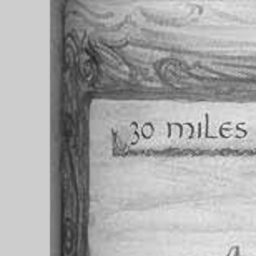 30 MILES